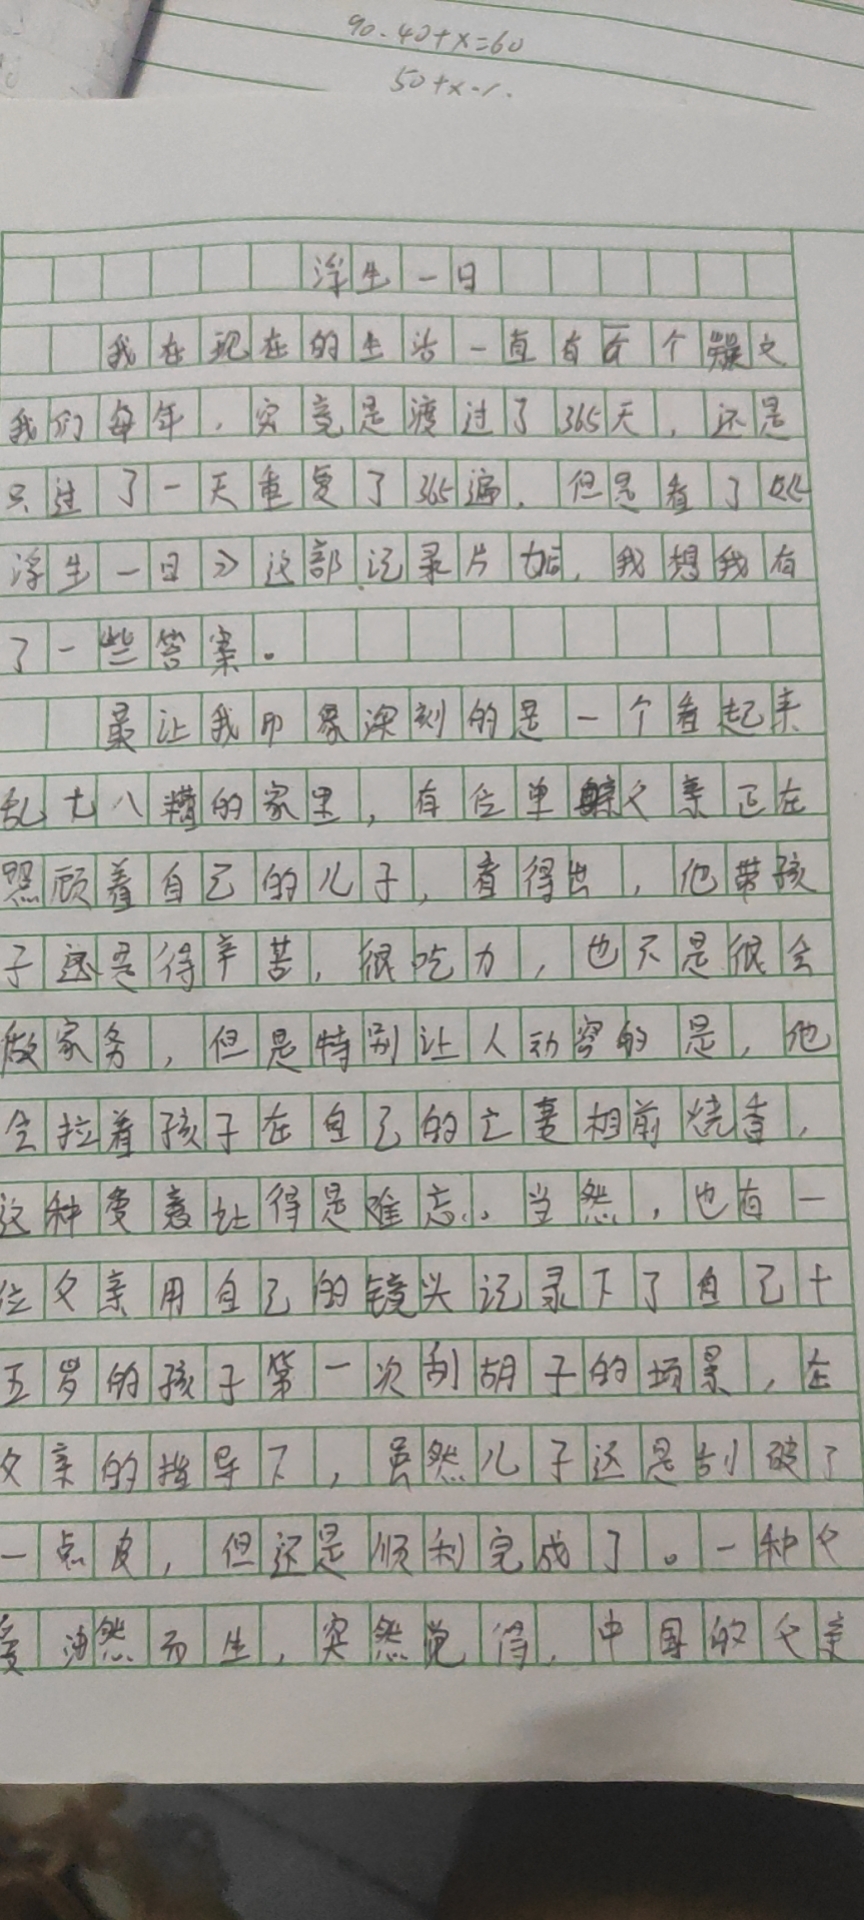 90-40+x=60
50+x-1.
浮生一日
我在现在的生活一直有个疑
我们每年，究竟是渡过了365天，还是
只过了一天重复了365遍，但是看了《
浮生一日》这部记录片后，我想我有
了一些答案。
最让我印象深刻的是一个看起来
乱七八糟的家里，有位单亲父亲正在
照顾着自己的儿子，看得出，他带孩
子还是得辛苦，很吃力，也不是很会
做家务，但是特别让人动容的是，他
会拉着孩子在自己的亡妻相前烧香，
这种爱意让得是难忘。当然，也有一
位父亲用自己的镜头记录下了自己十
五岁的孩子第一次刮胡子的场景，在
父亲的指导下，虽然儿子还是刮破了
一点皮，但还是顺利完成了。一种父
爱油然而生，突然觉得，中国的父亲